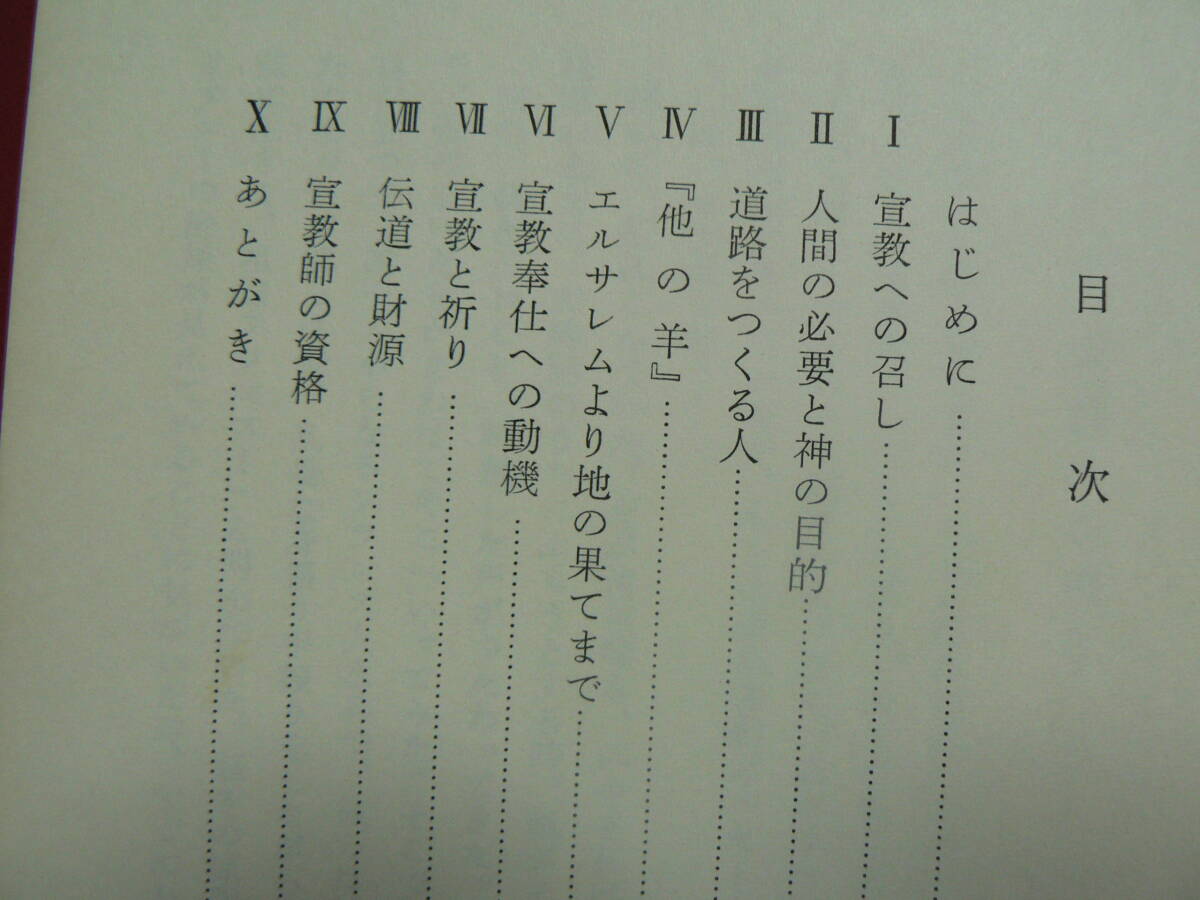 目次
はじめに
Ⅰ 宣教への召し
Ⅱ 人間の必要と神の目的
Ⅲ 道路をつくる人
Ⅳ 『他の羊』
Ⅴ エルサレムより地の果てまで
Ⅵ 宣教奉仕への動機
Ⅶ 宣教と祈り
Ⅷ 伝道と財源
Ⅸ 宣教師の資格
Ⅹ あとがき